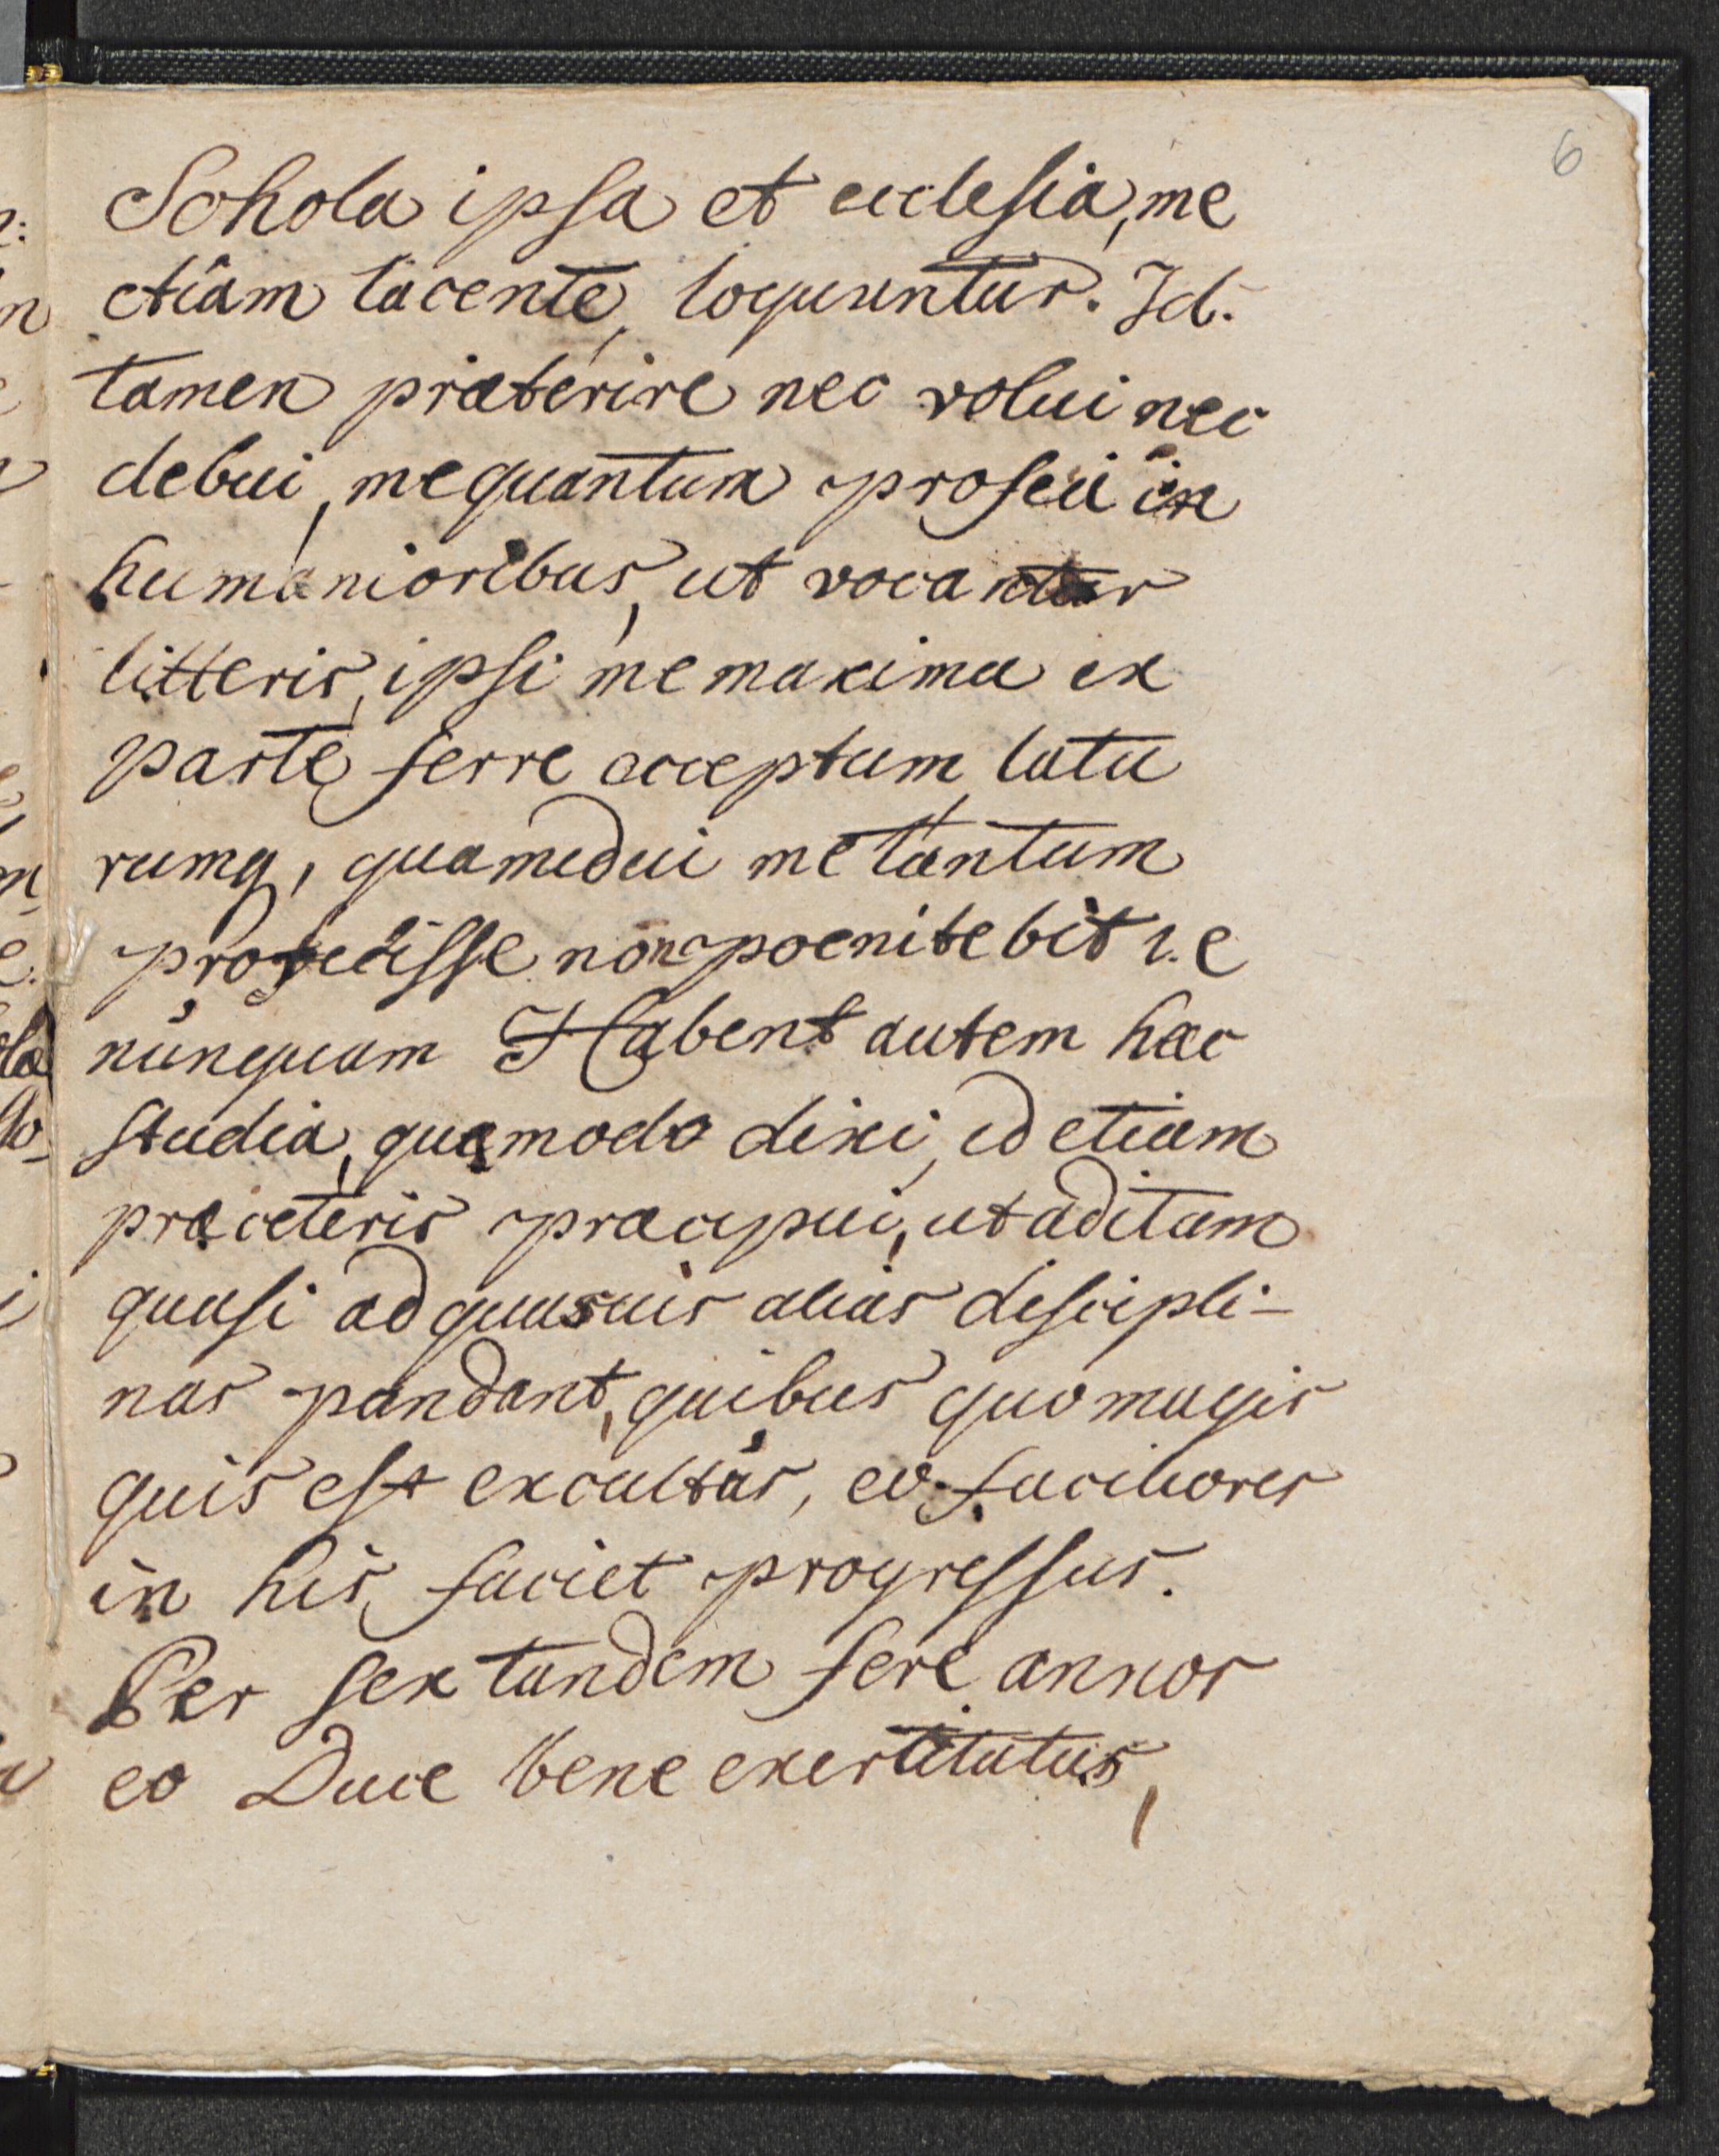 6
Schola ipsa et ecclesia, me
etiam tacente, loquuntur. Id.
tamen præterire nec volui nec
debui, me quantum profeci in
humanioribus, ut vocantur
litteris, ipsi me maxima ex
parte ferre acceptum, latu
rumq, quamdiu me tantum
profecisse non poenitebit i.e
nunquam Habent autem hæc
studia, quæ modo dixi, id etiam
præ ceteris præcipui, ut aditum
quasi ad quasuis alias discipli-
nas pandant, quibus quo magis
quis est excultus, eo faciliores
in his faciet progressus.
Per sex tandem fere annos
eo Duce bene exercitatus,